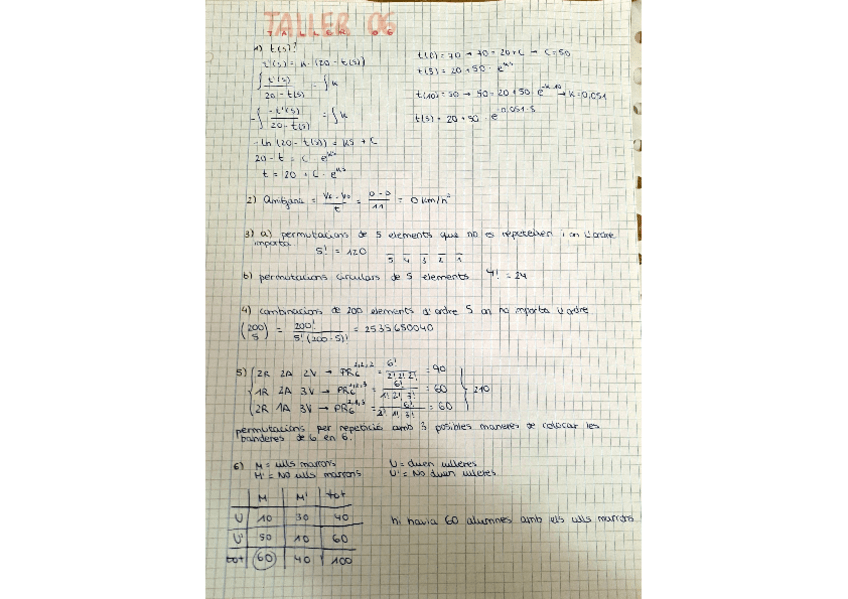 TALLER 06
TALLER 06
1) t(s)?
t'(s) = k · (20 - t(s))
∫ t'(s) / 20 - t(s) = ∫ k
-∫ -t'(s) / 20 - t(s) = ∫ k
- ln (20 - t(s)) = ks + C
20 - t = C · e^ks
t = 20 + C · e^ks
t(0) = 70 → 70 = 20 + C → C = 50
t(s) = 20 + 50 · e^ks
t(10) = 50 → 50 = 20 + 50 · e^-k·10 → k = 0,051
t(s) = 20 + 50 · e^-0,051·s
2) = Vf - V0 / t = 0 - 0 / 11 = 0 km/h²
3) a) permutacions de 5 elements que no es repeteixen i on l'ordre
importa
5! = 120 5 4 3 2 1
b) permutacions circulars de 5 elements 4! = 24
4) combinacions de 200 elements d'ordre 5 on no importa l'ordre
(200 5) = 200! / 5! (200 - 5)! = 2535650040
5) 2R 2A 2V → PR6^2,2,2 = 6! / 2! 2! 2! = 90
1R 2A 3V → PR6^1,2,3 = 6! / 1! 2! 3! = 60
2R 1A 3V → PR6^2,1,3 = 6! / 2! 1! 3! = 60
210
permutacions per repetició amb 3 posibles maneres de colocar les
banderes de 6 en 6.
6) M = ulls marrons U = duen ulleres
M' = No ulls marrons U' = No duen ulleres
M M' tot
U 10 30 40
U' 50 10 60
tot 60 40 100
hi havia 60 alumnes amb els ulls marrons